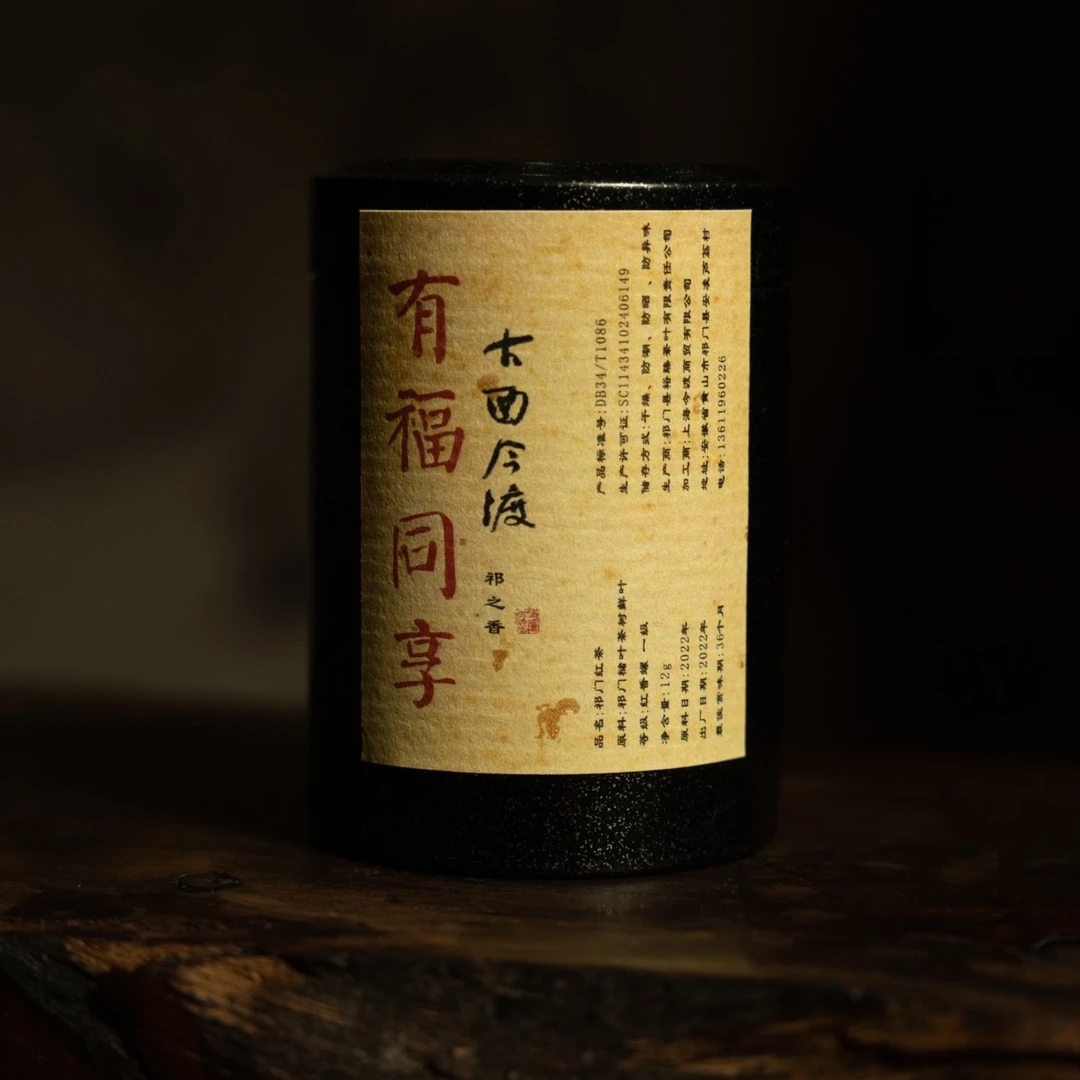 有福同享
古西今渡
祁之香
产品标准号:DB34/T1086
生产许可证:SC11434102406149
储存方式:干燥、防潮、防晒、防异味
生产商:祁门县裕臻茶叶有限责任公司
加工商:上海今渡商贸有限公司
地址:安徽省黄山市祁门县安凌芦荔村
电话:13611960226
品名:祁门红茶
原料:祁门槠叶茶树鲜叶
等级:红香螺 一级
净含量:12g
原料日期:2022年
出厂日期:2022年
最佳赏味期:36个月